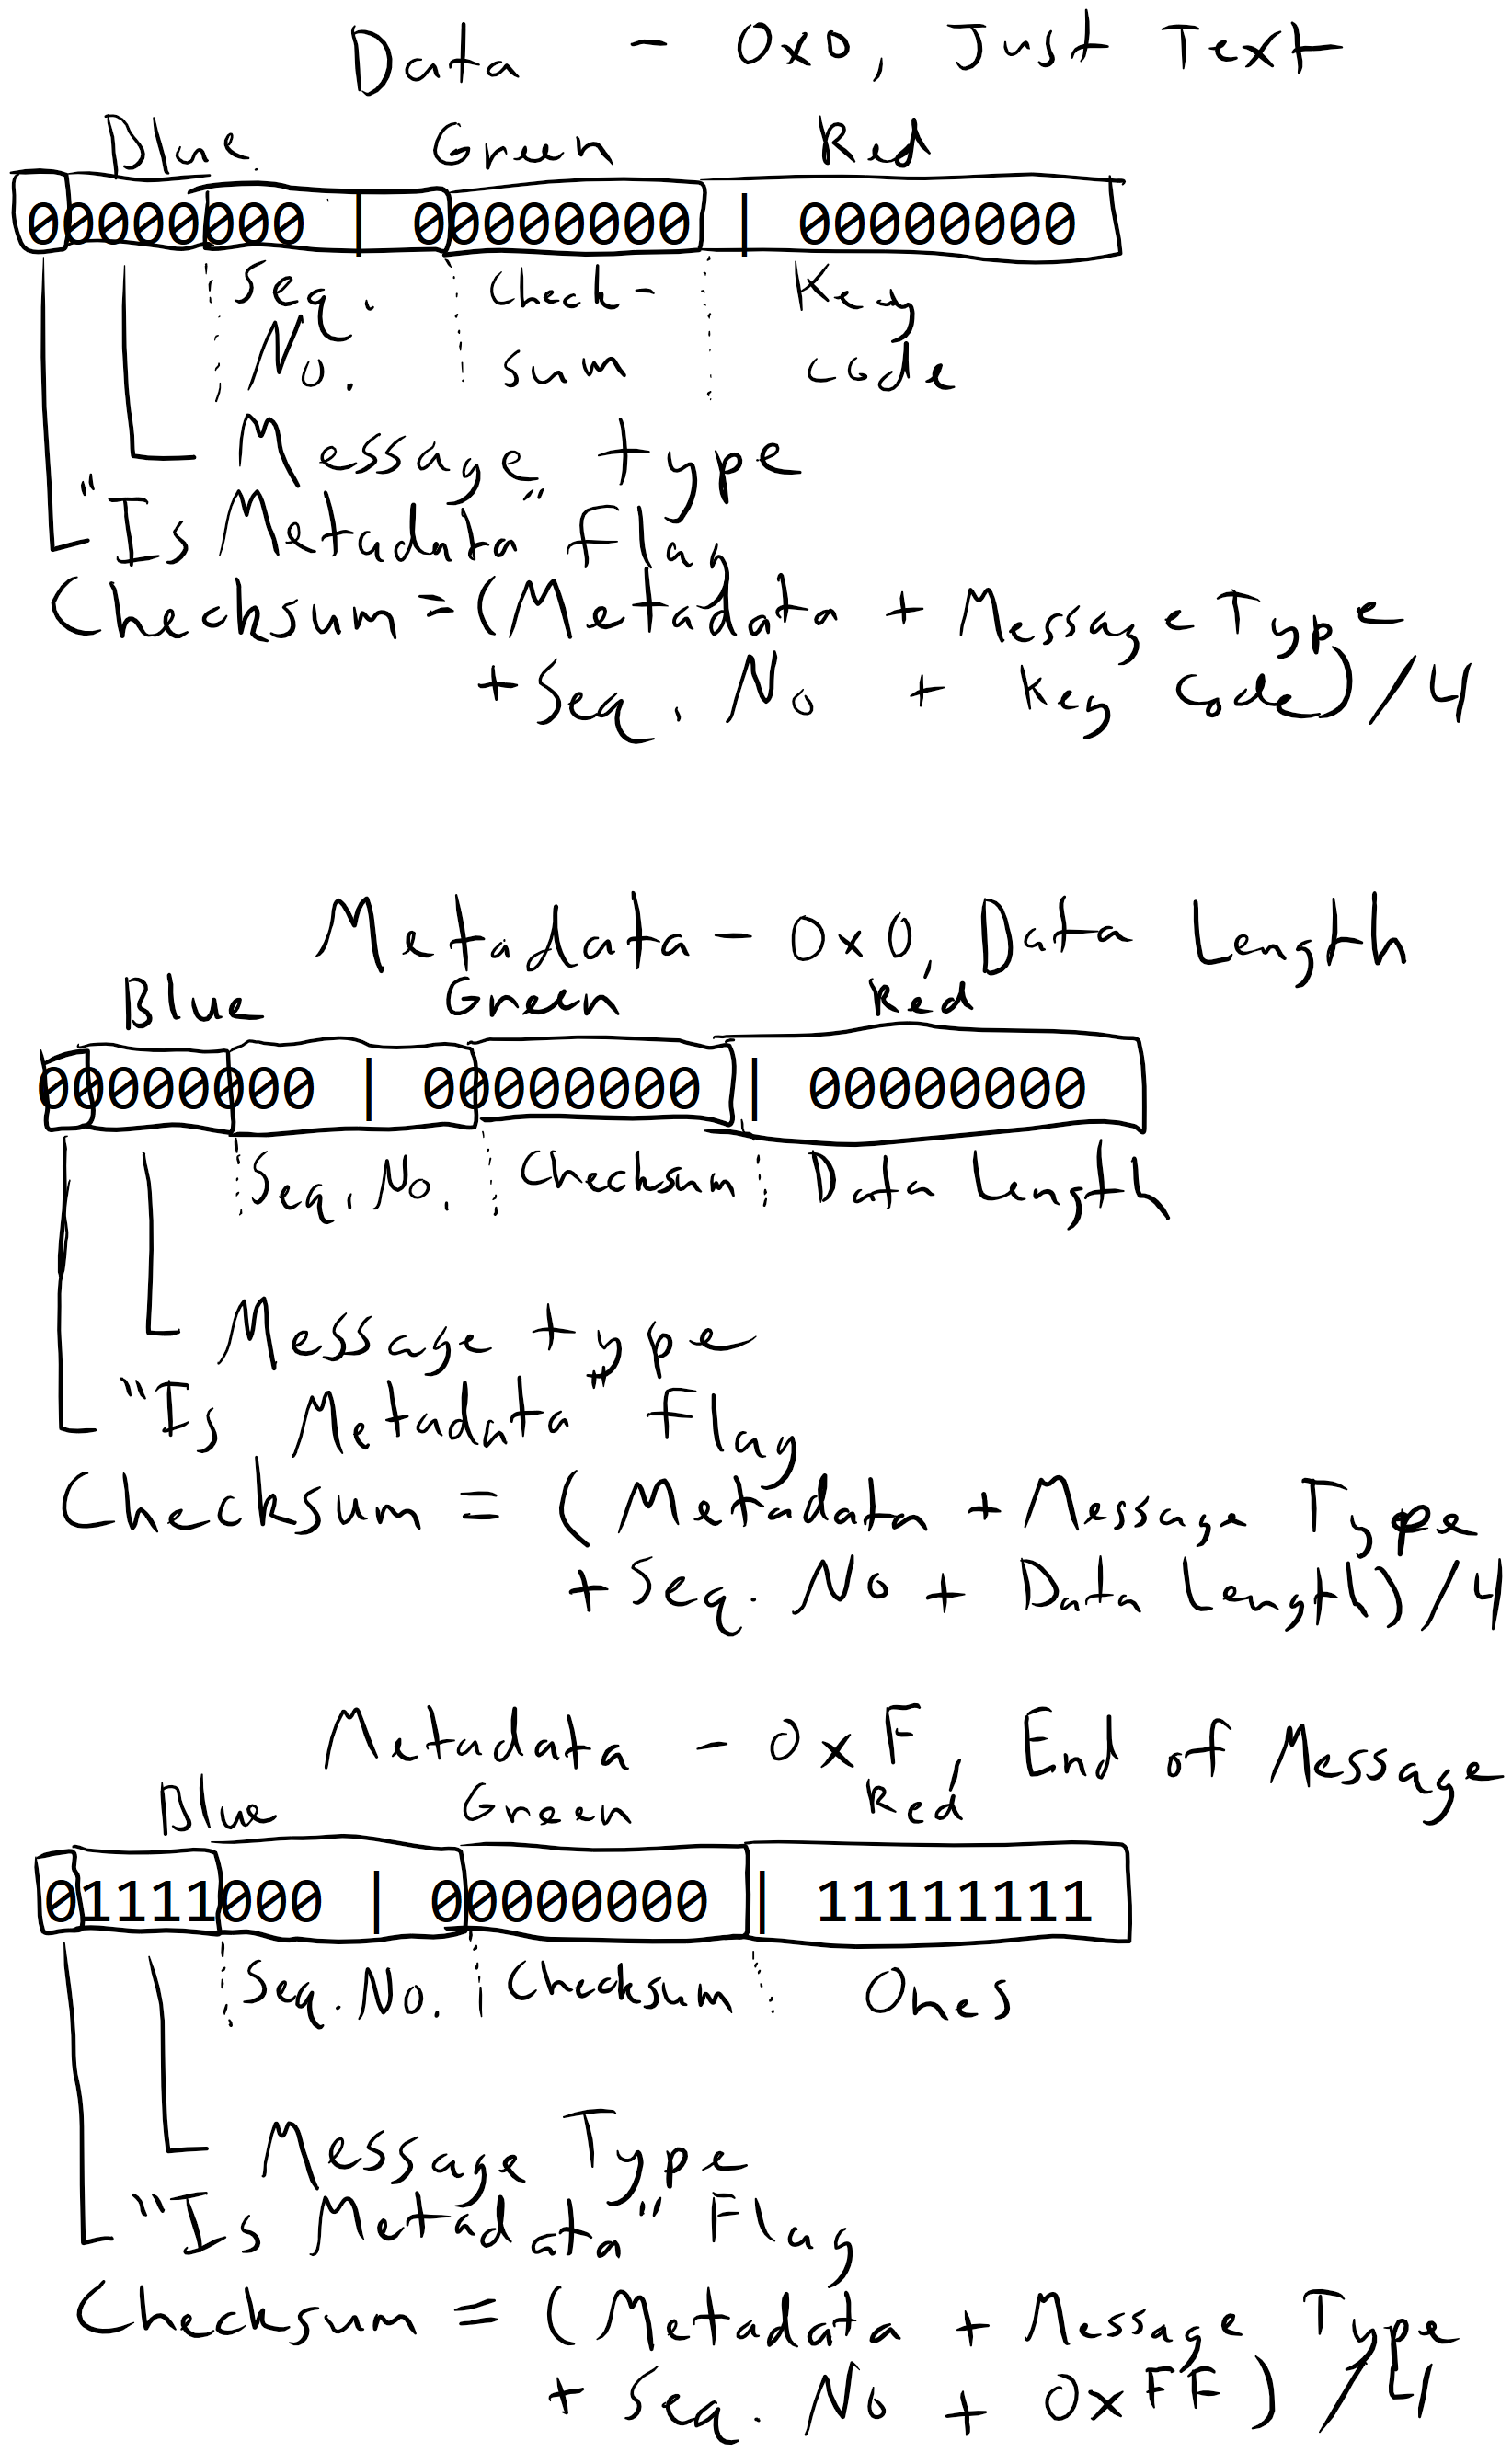 Data - 0x0, Just Text
Blue Green Red
00000000 | 00000000 | 00000000
Seq. Check- Key
No. sum code
Message type
"Is Metadata" Flag
Checksum = (Metadata + Message Type
+ Seq. No + Key code) /4
Metadata - 0x0, Data Length
Blue Green Red
00000000 | 00000000 | 00000000
Seq. No. Checksum Data Length
Message type
"Is Metadata" Flag
Checksum = (Metadata + Message Type
+ Seq. No + Data Length) /4
Metadata - 0xF, End of Message
Blue Green Red
01111000 | 00000000 | 11111111
Seq. No. Checksum Ones
Message Type
"Is Metadata" Flag
Checksum = (Metadata + Message Type
+ Seq. No + 0xFF) /4